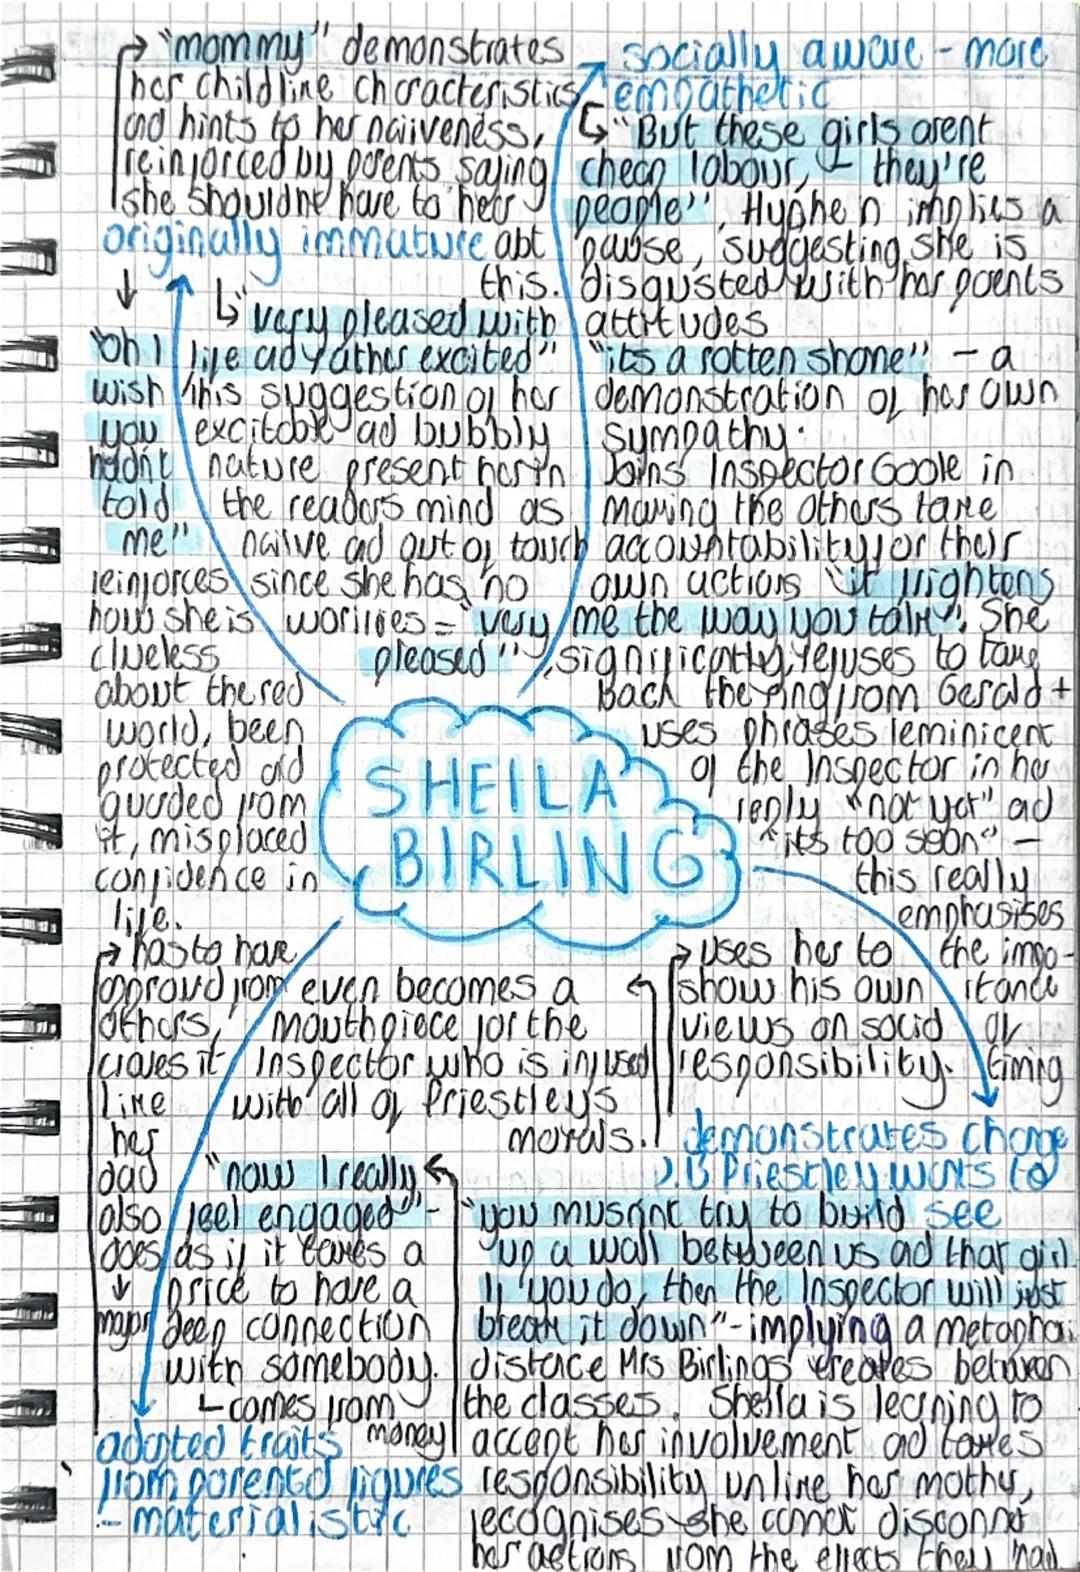 → "mommy" demonstrates
her childlike characteristics
and hints to her naiiveness,
reinforced by parents saying
she shouldnt have to hear
originally immature abt
this.
↓
↳ "very pleased with
life ad rather excited"
this suggestion of her
excitable ad bubbly
nature present her in
the readers mind as
naiive ad out of touch
since she has no
worries = "very
pleased"
"Oh I
wish
you
hadn't
told
me"
reinforces
how she is
clueless
about the real
world, been
protected and
guarded from
it, misplaced
confidence in
life.
socially aware - more
empathetic
↳ "But these girls arent
cheap labour, - they're
people", Hyphen implies a
pause, suggesting she is
disgusted with her parents
attitudes
"its a rotten shame" - a
demonstration of her own
sympathy.
Joins Inspector Goole in
making the others take
accountability for their
own actions "it frightens
me the way you talk". She
significantly, refuses to take
back the ring from Gerald +
uses phrases reminicent
of the Inspector in her
reply "not yet" ad
"its too soon" -
this really
emphasises
the impo-
rtance
of
timing
SHEILA
BIRLING
→ has to have
approval from
others,
craves it
like
her
dad
also
does
↓
major
even becomes a
mouthpiece for the
Inspector who is infused
with all of Priestleys
morals.
→ uses her to
show his own
views on social
responsibility.
"now I really
feel engaged" -
as if it takes a
price to have a
deep connection
with somebody.
↳ comes from
money
adopted traits
from parental figures
- materialistic
demonstrates change
J.B Priestley wants to
see
"you musnt try to build
up a wall between us ad that girl
If you do, then the Inspector will just
break it down" - implying a metaphor
distace Mrs Birlings creates between
the classes. Sheila is learning to
accept her involvement ad takes
responsibility unlike her mother,
recognises she cannot disconnect
her actions from the effects they had